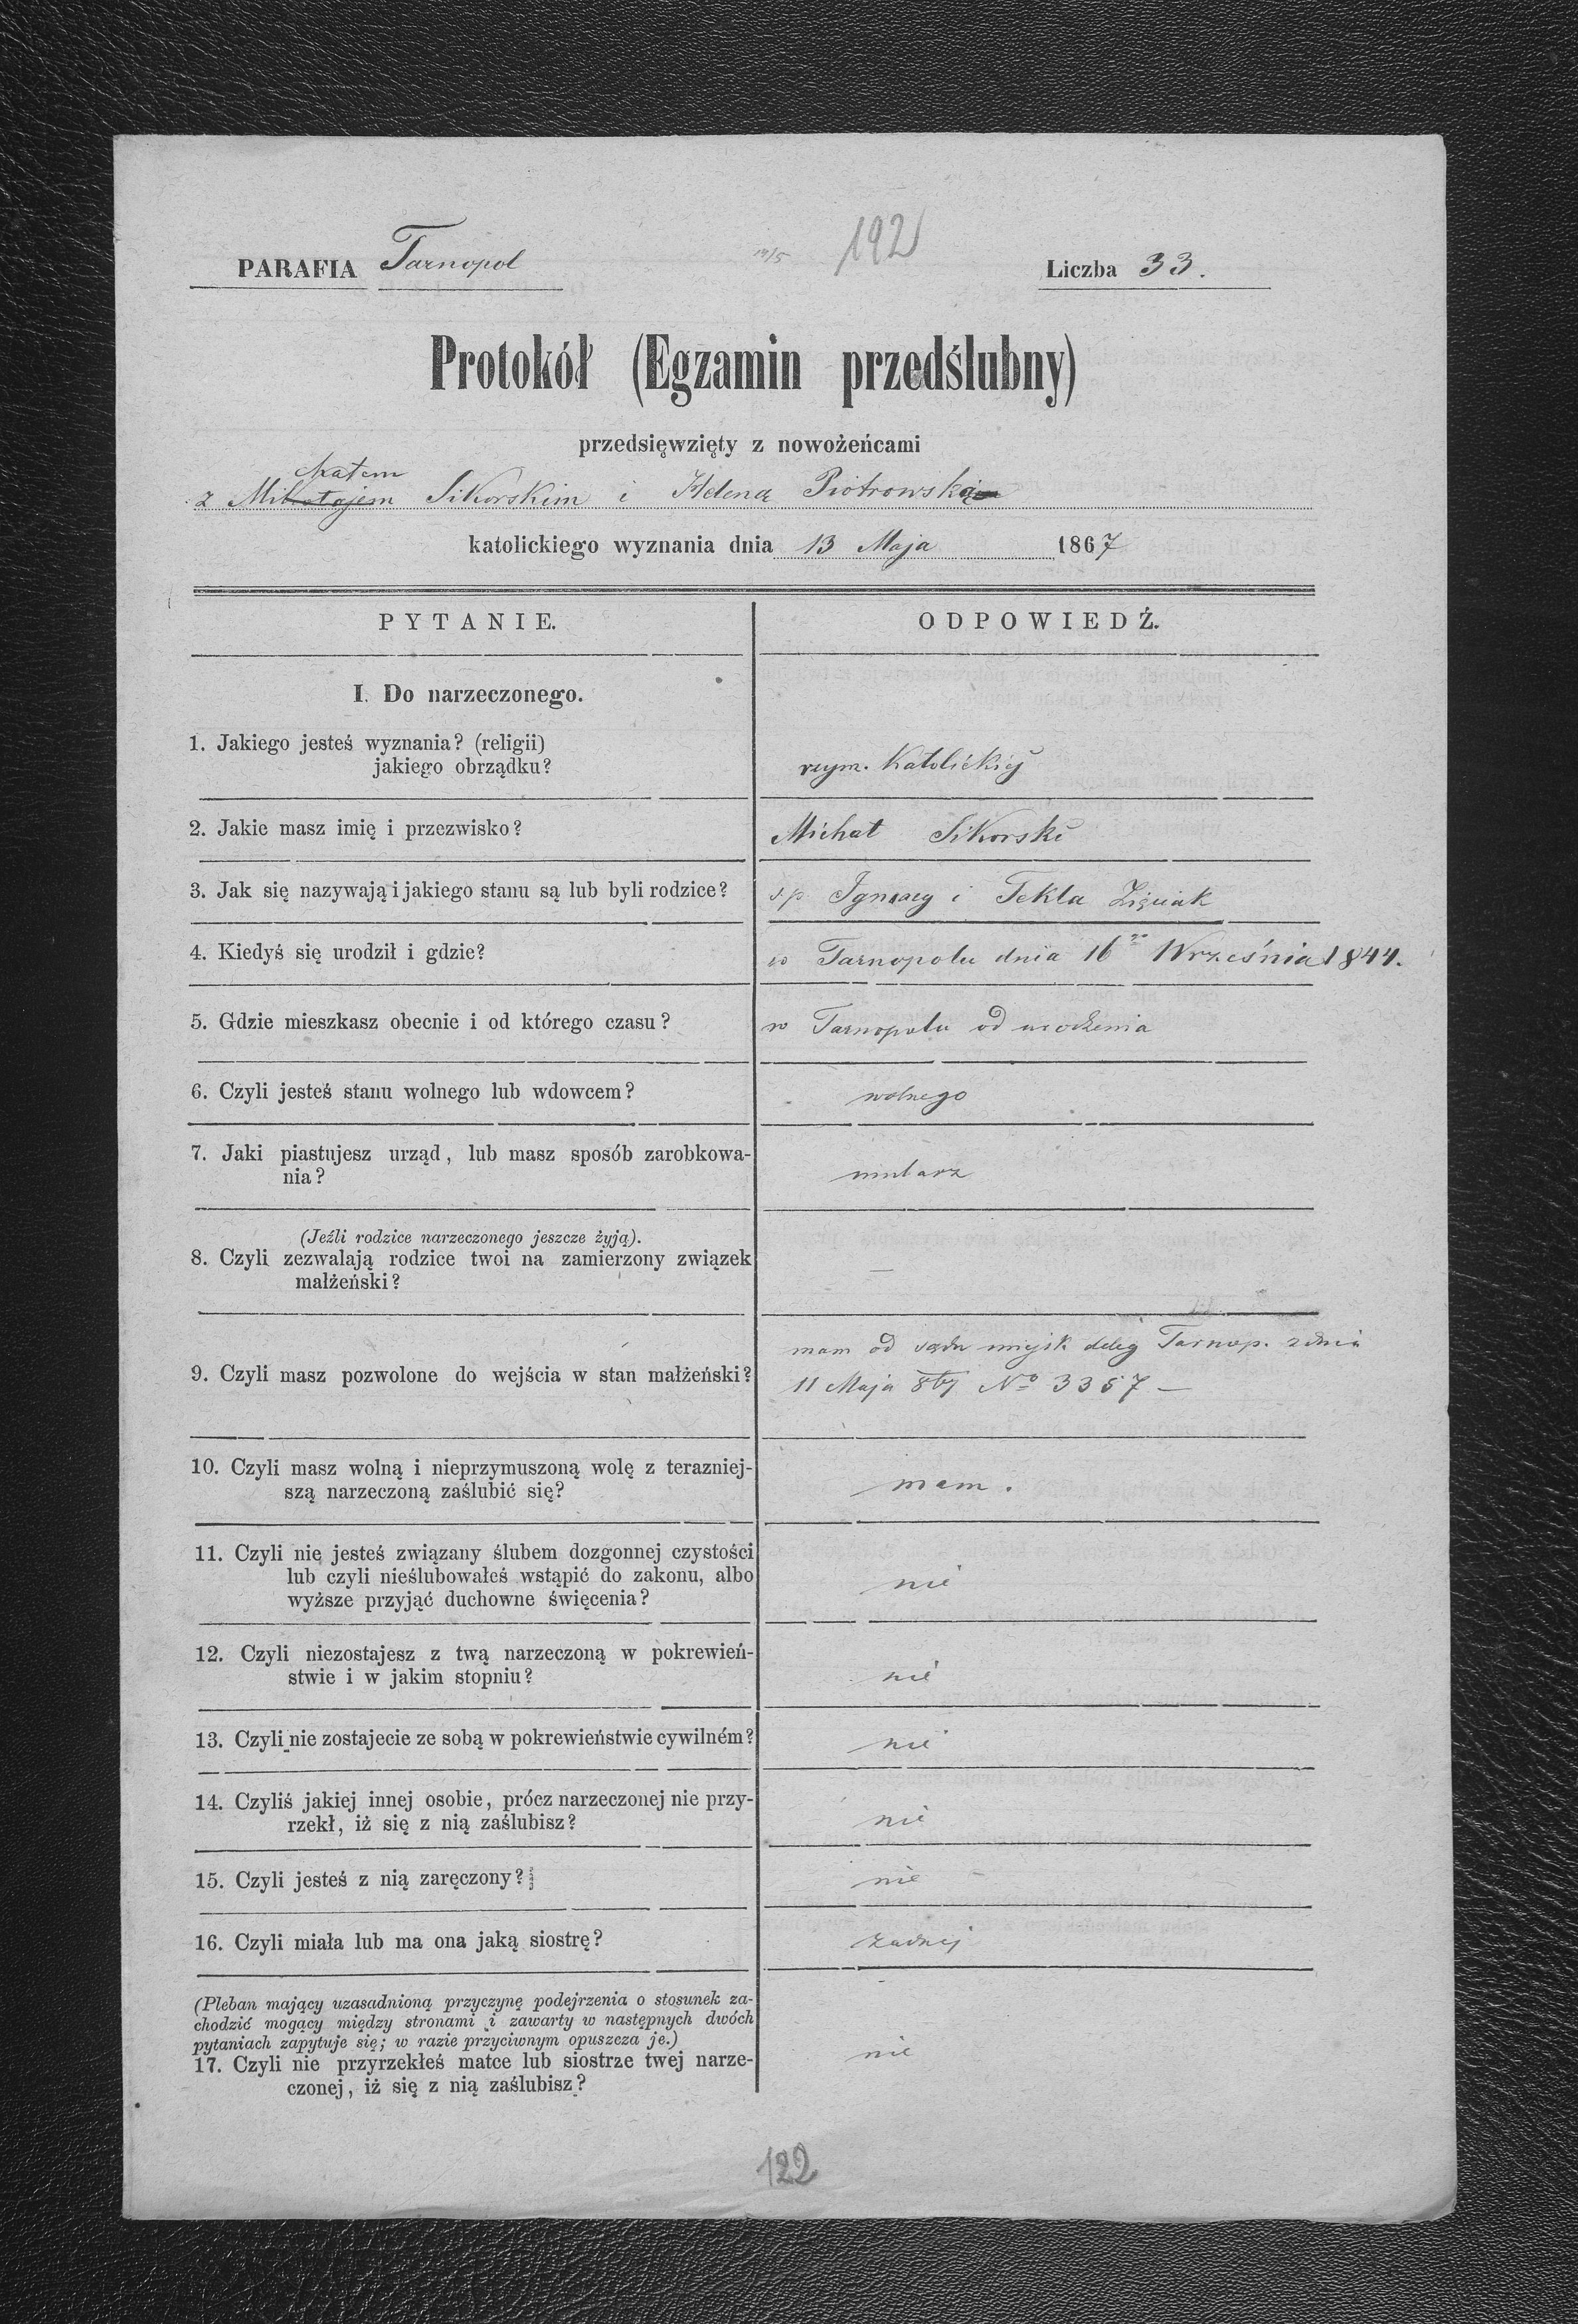 192
PARAFIA Tarnopol
Liczba 33.
Protokół (Egzamin przedślubny)
przedsięwzięty z nowożeńcami
chałem
z Mikołajem Sikorskim i Heleną Piotrowską
katolickiego wyznania dnia 13 Maja 1867
PYTANIE.
ODPOWIEDŹ.
I. Do narzeczonego.
1. Jakiego jesteś wyznania? (religii)
jakiego obrządku?
rzym. Katolickiej
2. Jakie masz imię i przezwisko?
Michał Sikorski
3. Jak się nazywają i jakiego stanu są lub byli rodzice?
ś.p Ignacy i Tekla
4. Kiedyś się urodził i gdzie?
w Tarnopolu dnia 16go Września 1844.
5. Gdzie mieszkasz obecnie i od którego czasu?
w Tarnopolu od urodzenia
6. Czyli jesteś stanu wolnego lub wdowcem?
wolnego
7. Jaki piastujesz urząd, lub masz sposób zarobkowa-
nia?
mularz
(Jeźli rodzice narzeczonego jeszcze żyją).
8. Czyli zezwalają rodzice twoi na zamierzony związek
małżeński?
—
9. Czyli masz pozwolone do wejścia w stan małżeński?
mam od sądu miejsk deleg Tarnop. z dnia
11 Maja No 3357 —
10. Czyli masz wolną i nieprzymuszoną wolę z terazniej-
szą narzeczoną zaślubić się?
mam.
11. Czyli nie jesteś związany ślubem dozgonnej czystości
lub czyli nieślubowałeś wstąpić do zakonu, albo
wyższe przyjąć duchowne święcenia?
nie
12. Czyli niezostajesz z twą narzeczoną w pokrewień-
stwie i w jakim stopniu?
nie
13. Czyli nie zostajecie ze sobą w pokrewieństwie cywilném?
nie
14. Czyliś jakiej innej osobie, prócz narzeczonej nie przy-
rzekł, iż się z nią zaślubisz?
nie
15. Czyli jesteś z nią zaręczony?
nie
16. Czyli miała lub ma ona jaką siostrę?
żadnej
(Pleban mający uzasadnioną przyczynę podejrzenia o stosunek za-
chodzić mogący między stronami i zawarty w następnych dwóch
pytaniach zapytuje się; w razie przyciwnym opuszcza je.)
17. Czyli nie przyrzekłeś matce lub siostrze twej narze-
czonej, iż się z nią zaślubisz?
nie
122